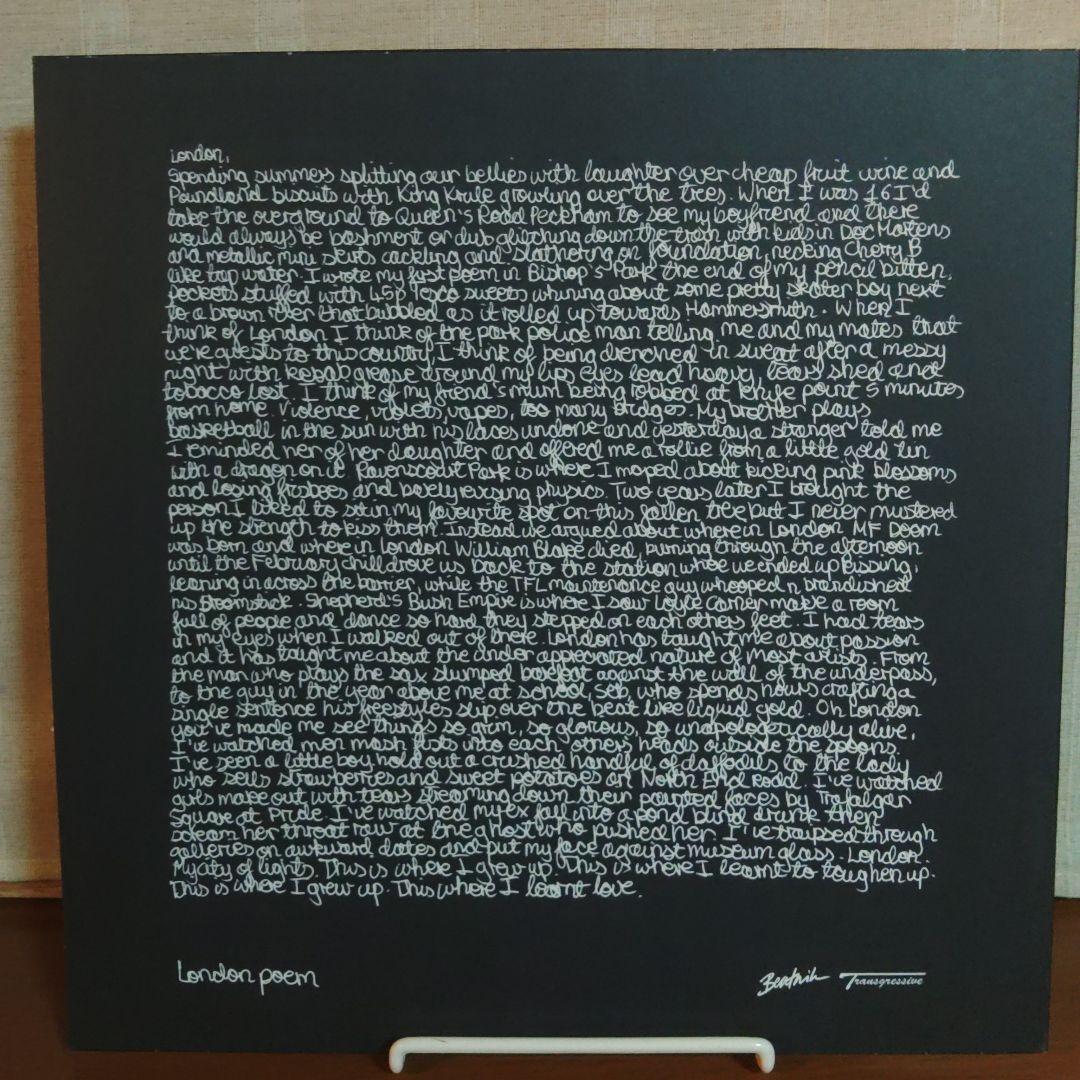 London,
Spending summers splitting our bellies with laughter over cheap fruit wine and
Poundland biscuits with King Krule growling over the trees. When I was 16 I'd
take the overground to Queen's Road Peckham to see my boyfriend and there
would always be bashment or dub glitching down the tron with kids in Doc Martens
and metallic mini skirts cackling and slathering on foundation, necking Cherry B
like tap water. I wrote my first poem in Bishop's Park the end of my pencil bitten,
pockets stuffed with 45p Tesco sweets whining about some pretty skater boy next
to a brown river that bubbled as it rolled up towards Hammersmith. When I
think of London I think of the park police man telling me and my mates that
we're guests to this country, I think of being drenched in sweat after a messy
night with kebab grease around my lips eyes lead heavy, tears shed and
tobacco lost. I think of my friend's mum being robbed at knife point 5 minutes
from home. Violence, violets, vapes, too many bridges. My brother plays
basketball in the sun with his laces undone and yesterday a stranger told me
I reminded her of her daughter and offered me a rollie from a little gold tin
with a dragon on it. Ravenscourt Park is where I moped about kicking pink blossoms
and losing frisbees and barely revising physics. Two years later I brought the
person I liked to sit in my favourite spot on this fallen tree but I never mustered
up the strength to kiss them. Instead we argued about where in London MF Doom
was born and where in London William Blake died, burning through the afternoon
until the February chill drove us back to the station where we ended up kissing,
leaning in across the barrier, while the TFL maintenance guy whooped n brandished
his broomstick. Shepherd's Bush Empire is where I saw Loyle Carner make a room
full of people and dance so hard they stepped on each others feet. I had tears
in my eyes when I walked out of there. London has taught me about passion
and it has taught me about the under appreciated nature of most artists. From
the man who plays the sax slumped barefoot against the wall of the underpass,
to the guy in the year above me at school, Seb, who spends hours crafting a
single sentence his freestyles slip over the beat like liquid gold. Oh London
you've made me see things so grim, so glorious, so unapologetically alive,
I've watched men mash fists into each others heads outside the spoons.
I've seen a little boy hold out a crushed handful of daffodils to the lady
who sells strawberries and sweet potatoes on North End Road. I've watched
girls make out with tears streaming down their painted faces by Trafalgar
Square at Pride. I've watched my ex fall into a pond blind drunk then
scream her throat raw at the ghost who pushed her. I've traipsed through
galleries on awkward dates and put my face against museum glass. London.
My city of lights. This is where I grew up. This is where I learnt to toughen up.
This is where I grew up. This where I learnt love.
London poem
Beatnik Transgressive